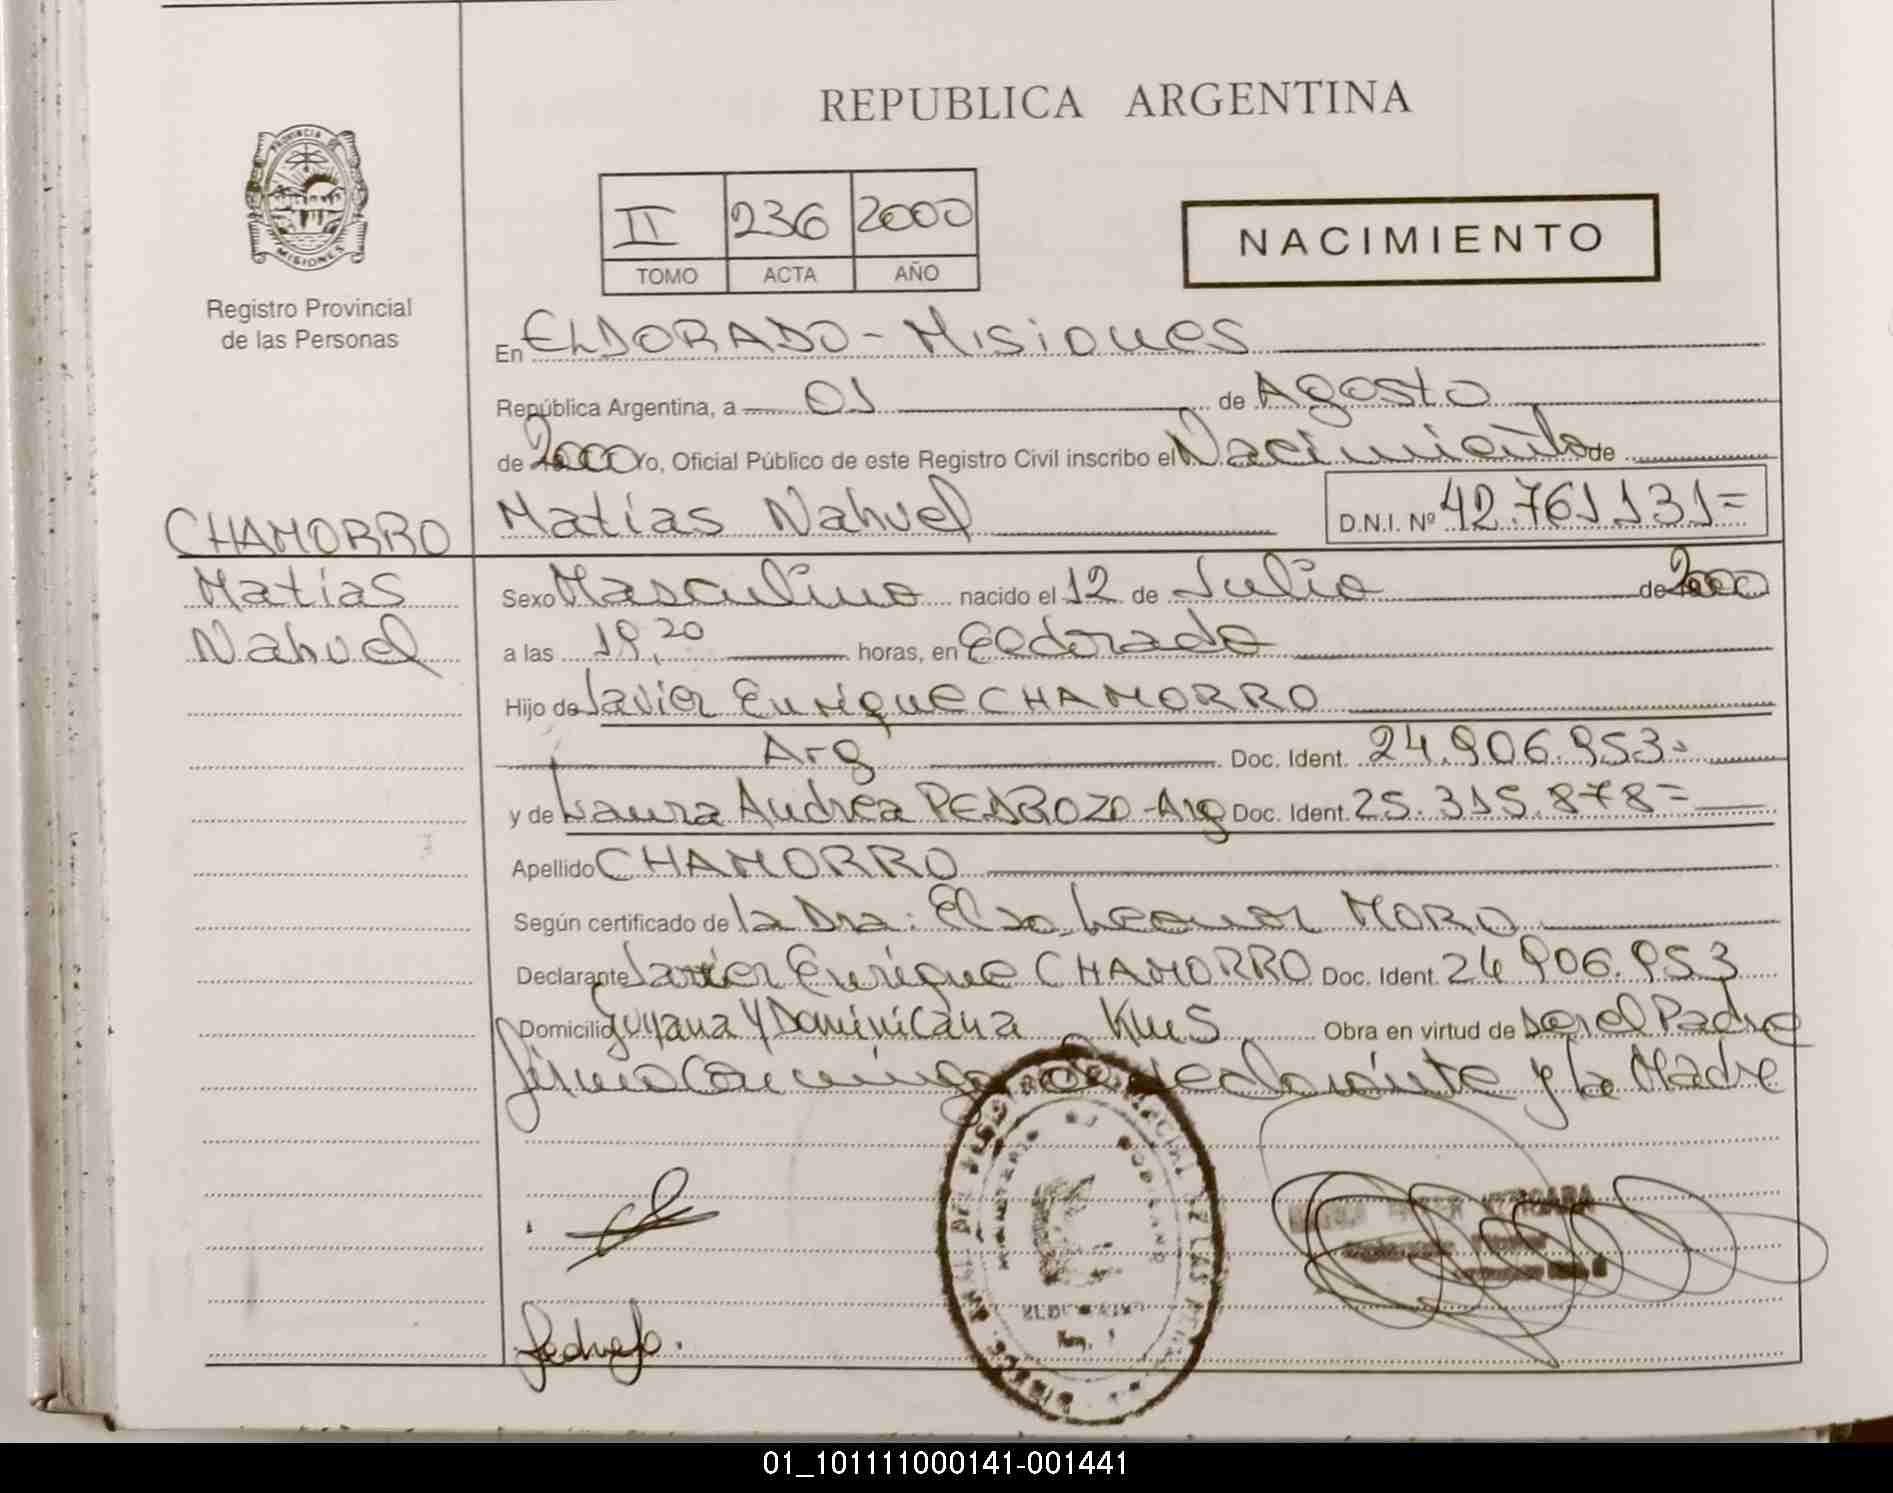 REPUBLICA ARGENTINA
PROVINCIA DE
MISIONES
Registro Provincial
de las Personas
II 236 2000
TOMO ACTA AÑO
NACIMIENTO
En ELDORADO - Misiones
República Argentina, a 01 de Agosto
de 2000 Yo, Oficial Público de este Registro Civil inscribo el Nacimiento de
CHAMORRO
Matías
Nahuel
Matías Nahuel D.N.I. Nº 42.761.131=
Sexo Masculino nacido el 12 de Julio de 2000
a las 19,20 horas, en Eldorado
Hijo de Javier Enrique CHAMORRO
Arg Doc. Ident. 24.906.953=
y de Laura Andrea PEDROZO - Arg Doc. Ident. 25.315.878=
Apellido CHAMORRO
Según certificado de la Dra: Elsa Leonor MORO
Declarante Javier Enrique CHAMORRO Doc. Ident. 24.906.953
Domicilio Guyana y Dominicana Obra en virtud de ser el Padre
firma conmigo el declarante y la Madre
01_101111000141-001441